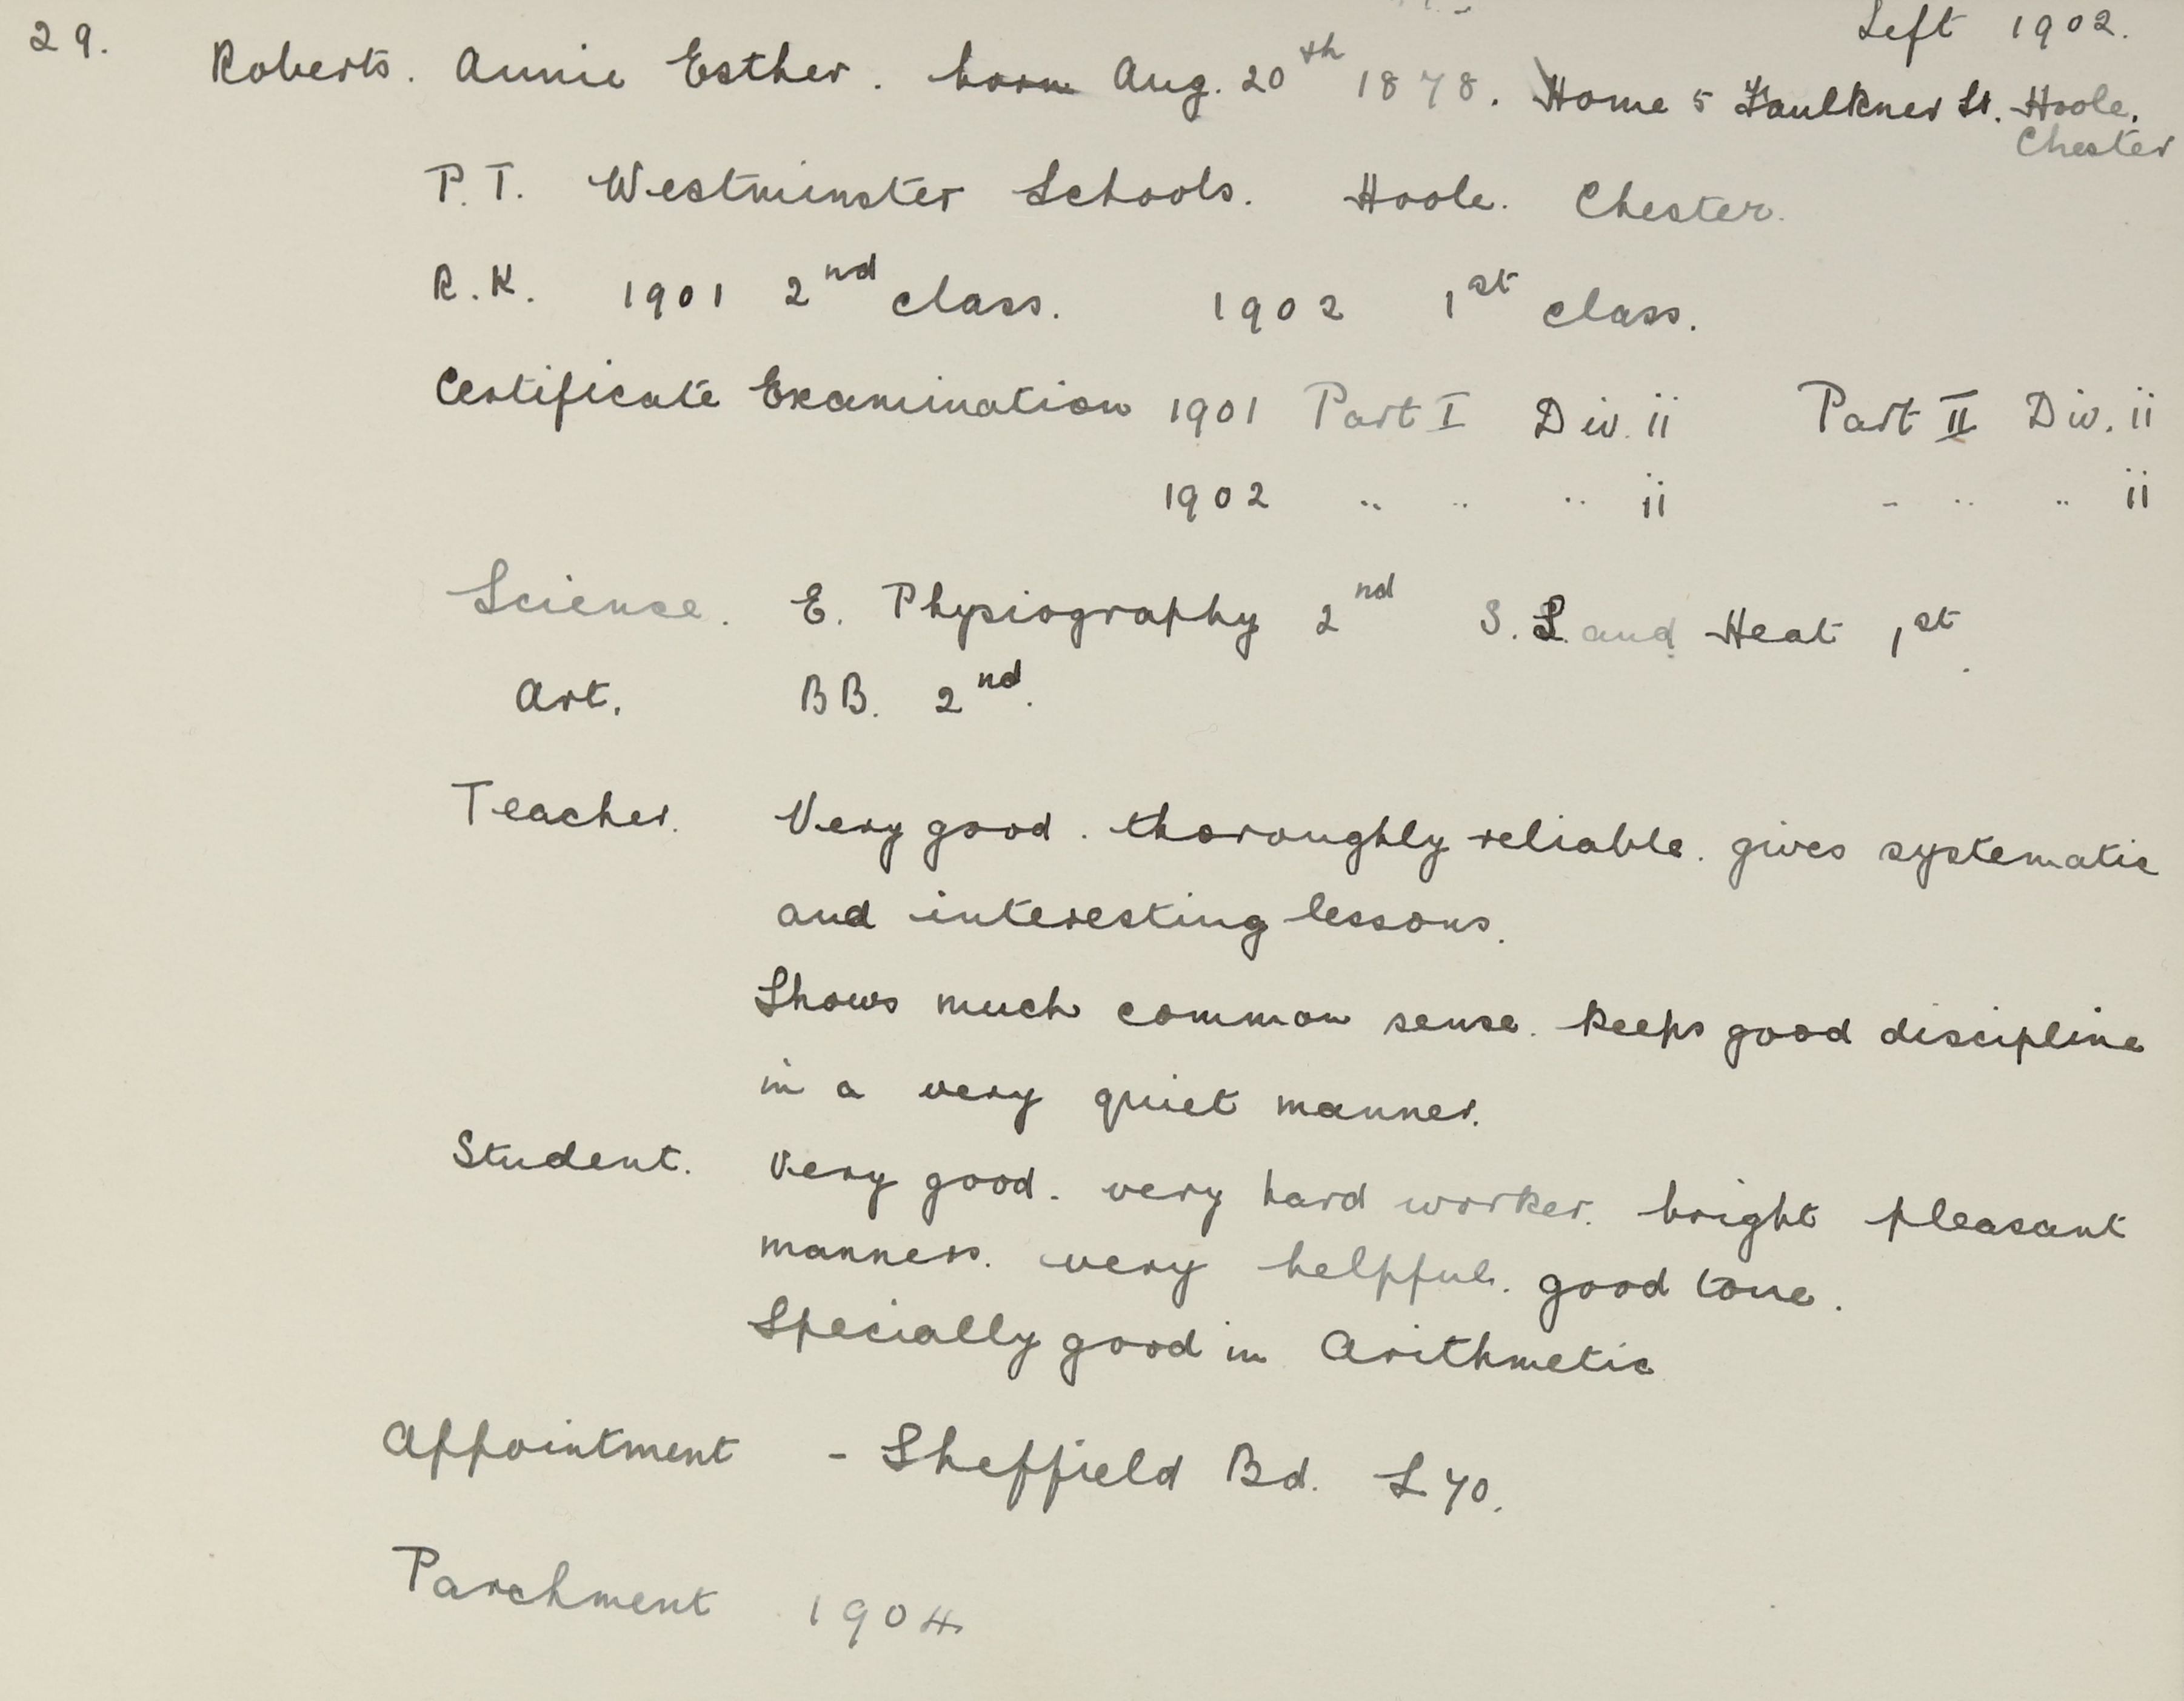 Left 1902.
29. Roberts. Annie Esther. born Aug. 20th 1878. Home 5 Faulkner St. Hoole.
Chester
P.T. Westminster Schools. Hoole. Chester.
R.K. 1901 2nd class. 1902 1st class.
Certificate Examination 1901 Part I Div. ii Part II Div. ii
1902 .. .. .. ii - .. .. ii
Science. E. Physiography 2nd S. L. and Heat 1st.
Art. BB. 2nd.
Teacher. Very good. thoroughly reliable. gives systematic
and interesting lessons.
Shows much common sense. Keeps good discipline
in a very quiet manner.
Student. Very good. very hard worker. bright pleasant
manners. very helpful. good tone.
Specially good in Arithmetic
Appointment - Sheffield Bd. £70.
Parchment 1904